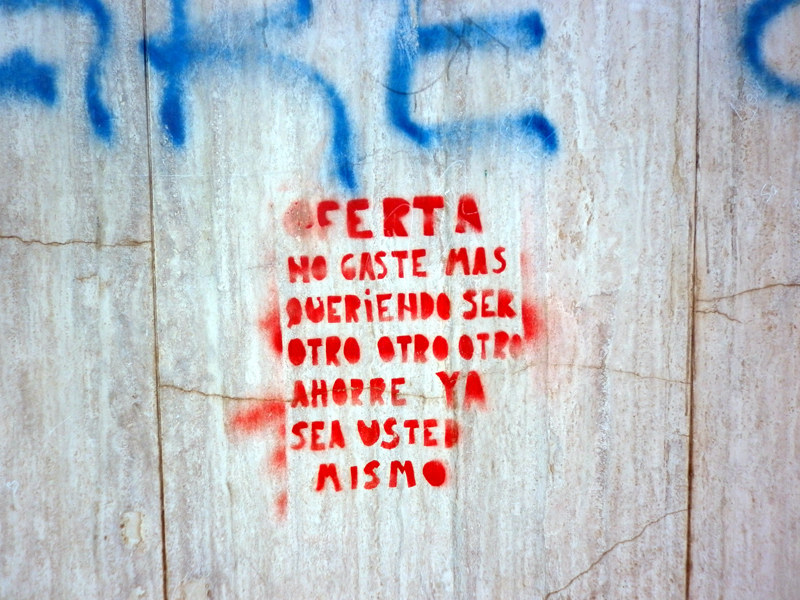 OFERTA
NO GASTE MAS
QUERiENDO SER
OTRO OTRO OTRO
AHORRE YA
SEA USTED
MISMO